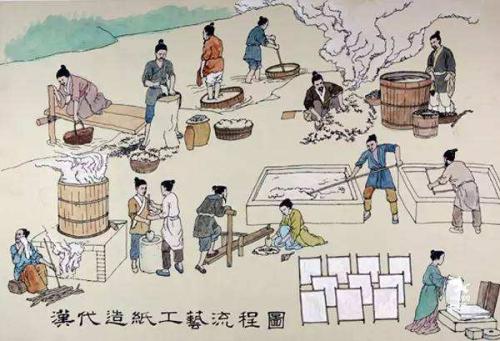 漢代造紙工藝流程圖